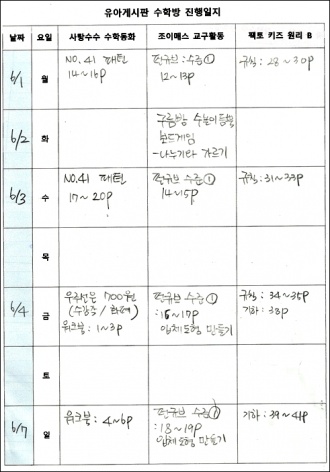 유아게시판 수학방 진행일지
날짜 요일 사탕수수 수학동화 조이매스 교구활동 팩토 키즈 원리 B
6/1 월 NO.41 패턴 펀큐브 수준① 규칙: 28~30p
14~16p 12~13p
6/2 화 구름방 수놀이
보드게임
-나누기와 가르기
6/3 수 NO.41 패턴 펀큐브 수준① 규칙: 31~33p
17~20p 14~15p
목
6/4 금 우주선은 700원 펀큐브 수준① 규칙: 34~35p
(수감각/화폐) :16~17p 기하: 38p
워크북: 1~3p 입체도형 만들기
토
6/7 일 워크북: 4~6p 펀큐브 수준① 기하: 39~41p
:18~19p
입체도형 만들기